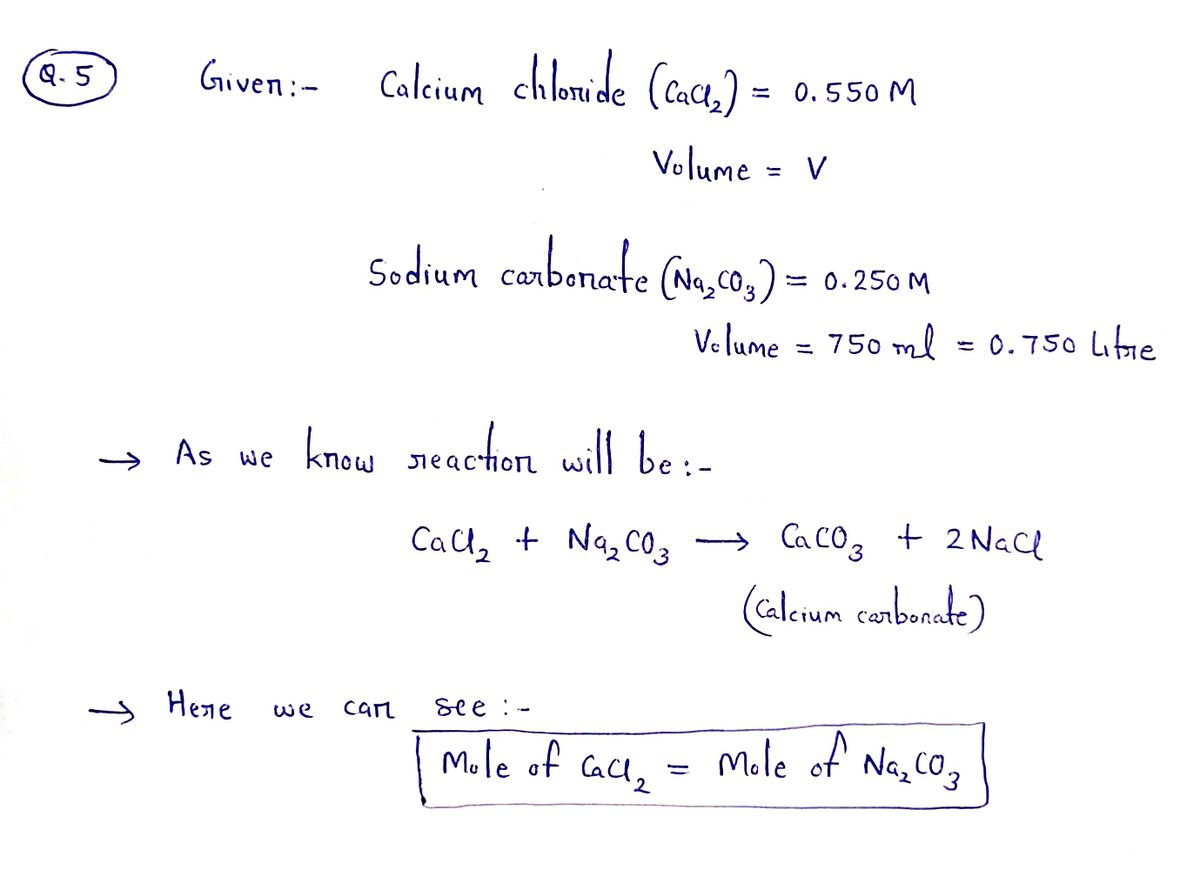 Q. 5 Given:- Calcium chloride (CaCl₂) = 0.550 M
Volume = V
Sodium carbonate (Na₂CO₃) = 0.250 M
Volume = 750 ml = 0.750 Litre
→ As we know reaction will be:-
CaCl₂ + Na₂CO₃ → CaCO₃ + 2NaCl
(Calcium carbonate)
→ Here we can see :-
Mole of CaCl₂ = Mole of Na₂CO₃